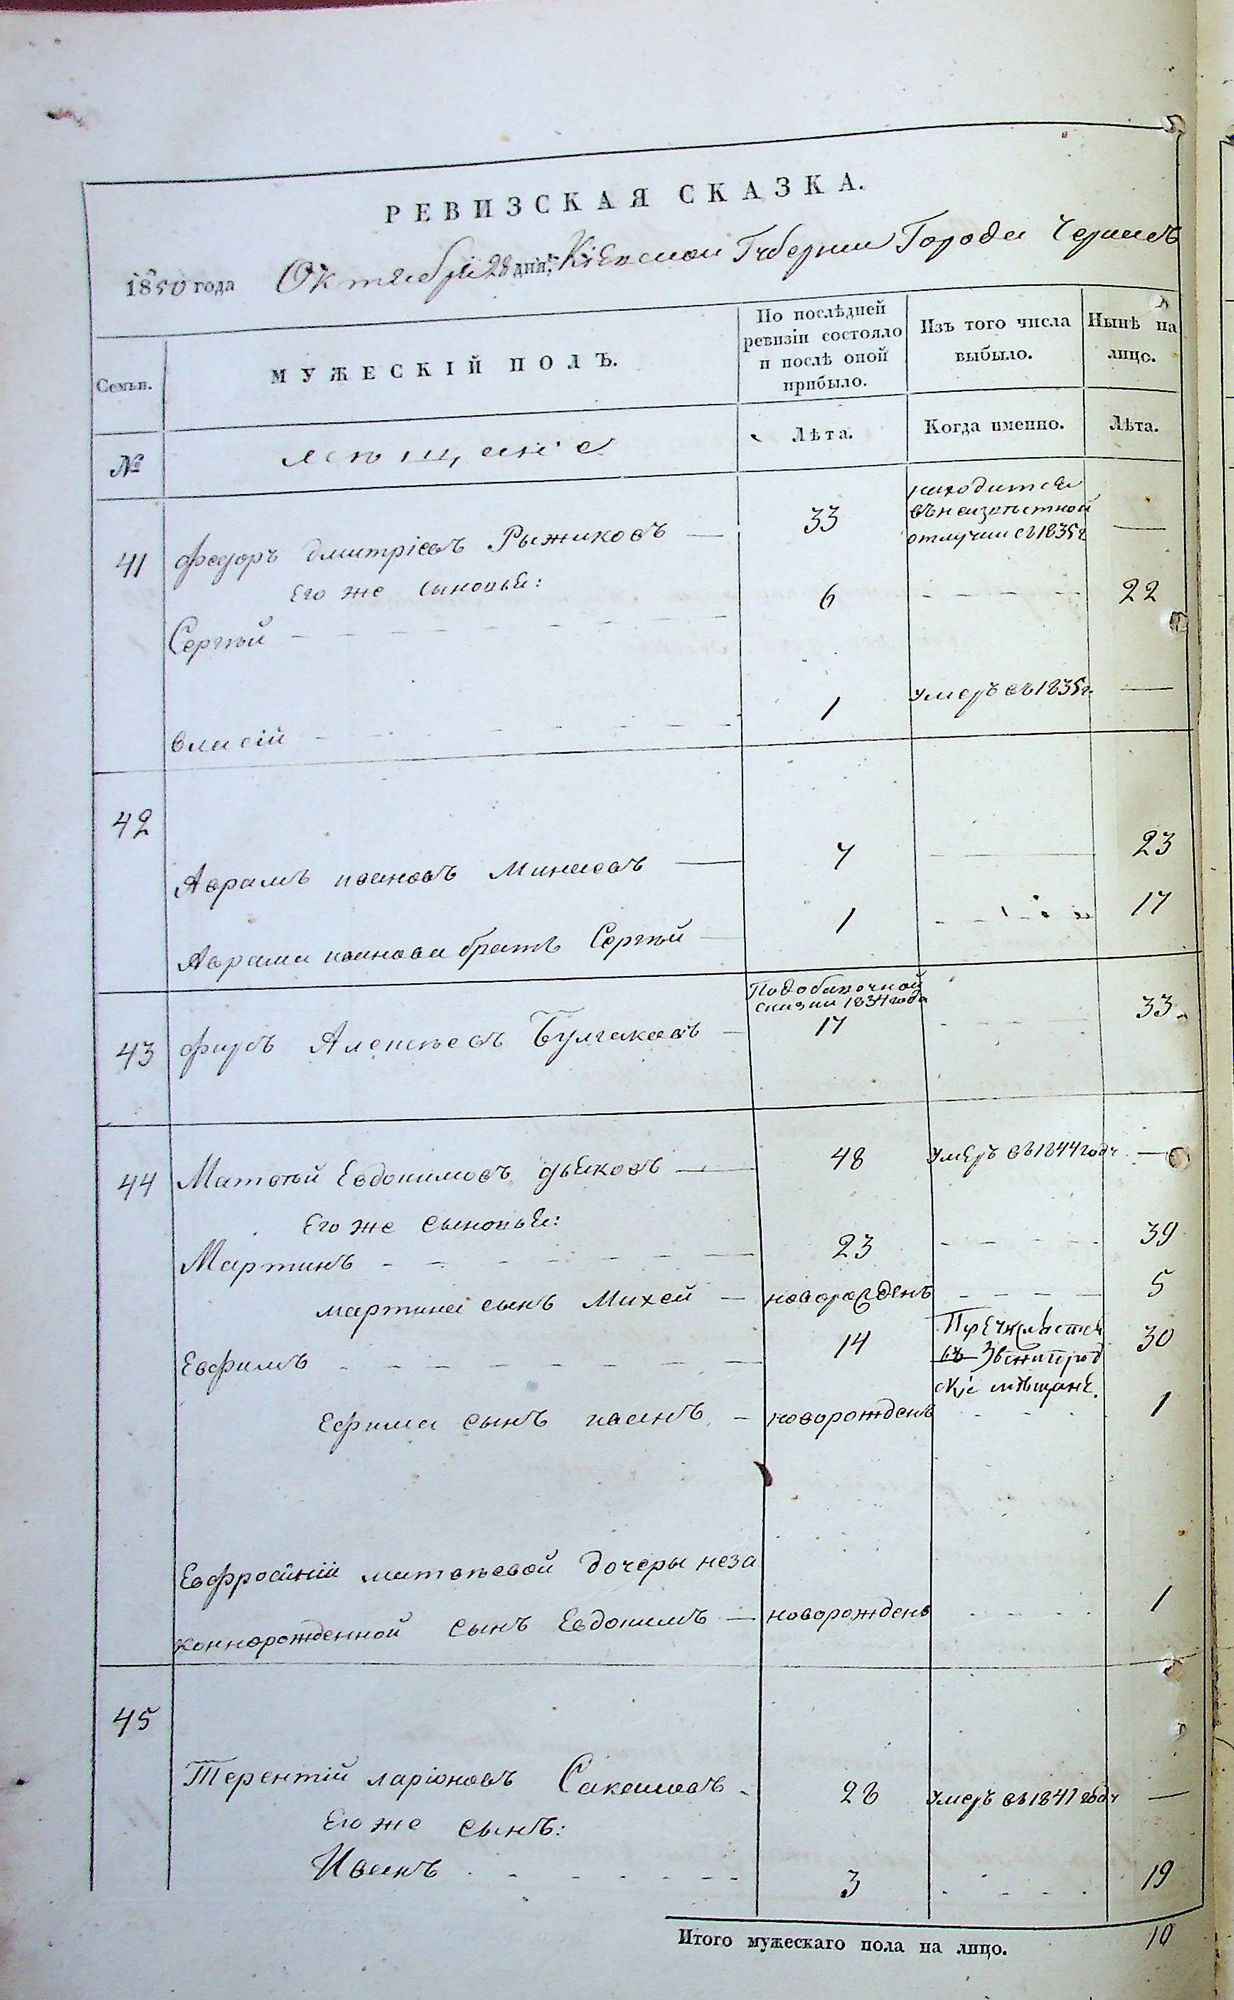 РЕВИЗСКАЯ СКАЗКА.
1850 года Октября 28 дня, Кіевской Губерніи Города
Семьи. МУЖЕСКІЙ ПОЛЪ. По послѣдней ревизіи состояло и послѣ оной прибыло. Изъ того числа выбыло. Нынѣ на лицо.
№ Мѣщане Лѣта. Когда именно. Лѣта.
41 Федоръ Дмитріевъ Рыжиковъ — 33 находится въ неизвѣстной отлучки съ 1835 г —
Его же сыновья:
Сергѣй 6 22
Власій 1 умеръ въ 1835 г. —
42
Аврамъ ивановъ Минаевъ — 7 — 23
Аврама иванова братъ Сергѣй 1 17
43 фирсъ Алексѣевъ Булгаковъ — Подобавочной сказки 1834 года 17 33
44 Матвѣй Евдокимовъ дьяковъ — 48 умеръ въ 1844 году —
Его же сыновья:
Мартинъ 23 39
мартина сынъ Михей — новорожденъ 5
Евфимъ 14 Пречисляется въ Звенигородскіе мѣщане. 30
Ефима сынъ иванъ — новорожденъ 1
Евфросиніи матвѣевой дочеры неза
коннорожденной сынъ Евдокимъ — новорожденъ 1
45
Терентій ларіоновъ 28 умеръ въ 1841 году —
Его же сынъ:
Иванъ 3 19
Итого мужескаго пола на лицо. 10